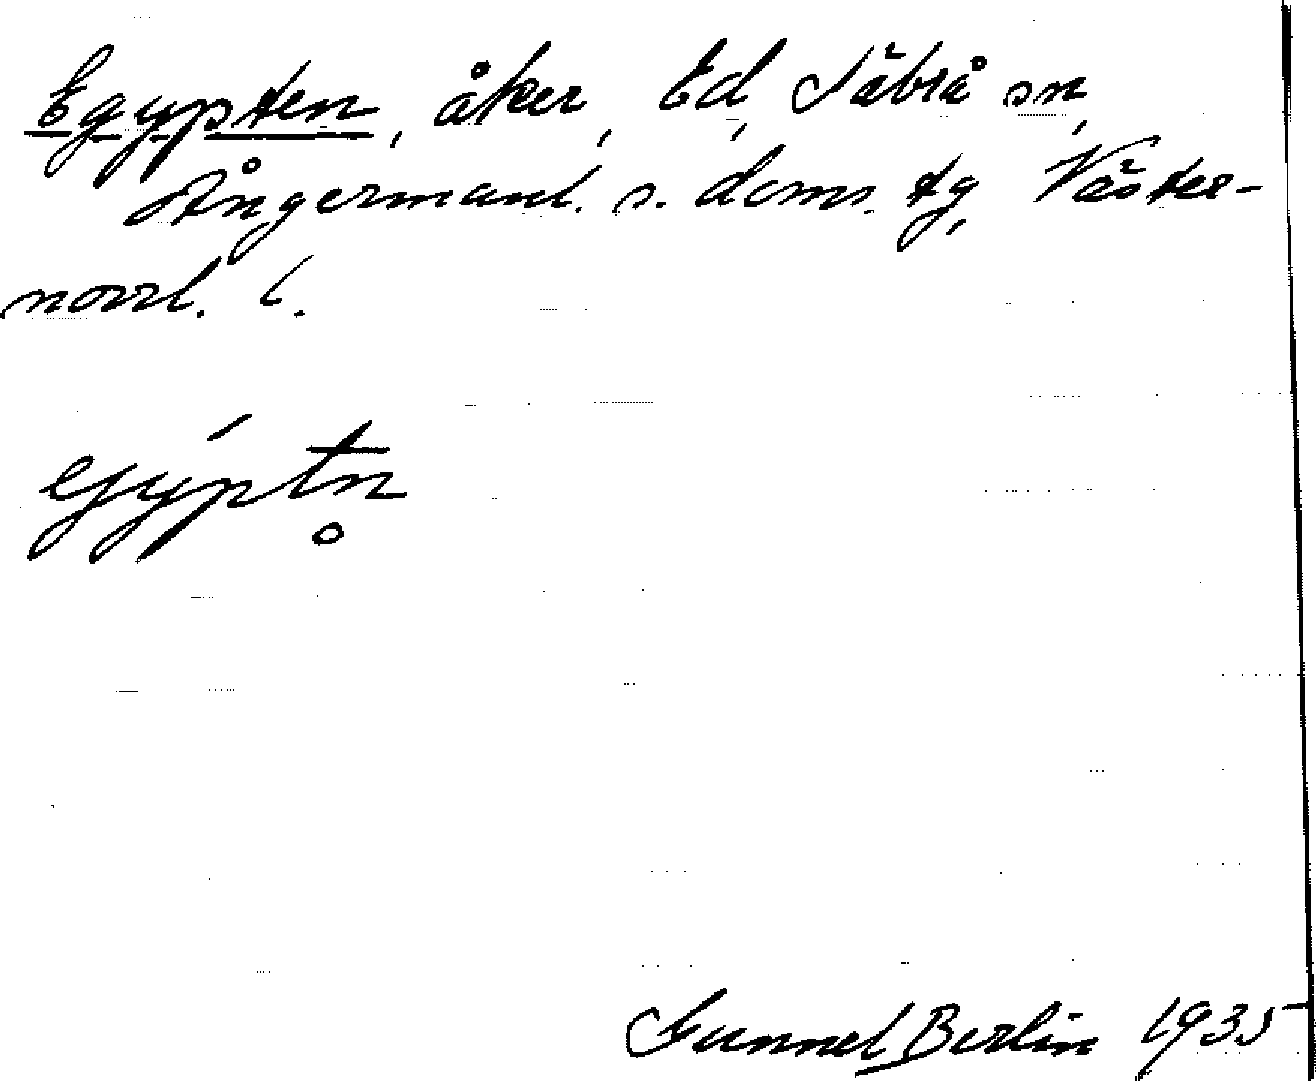 Egypten, åker, Ed, Säbrå sn,
Ångermanl. s. doms. tg, Väster-
norrl. l.
egýptn̥
Gunnel Berlin 1935